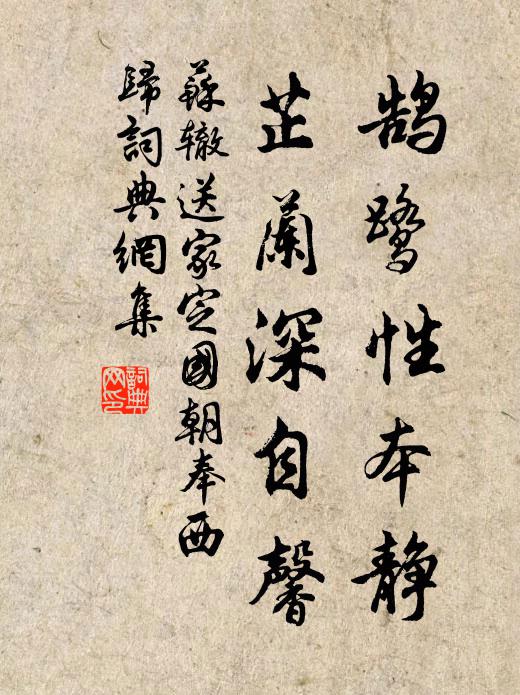 鹄鹭性本静
芷蘭深自馨
蘇辙送家定國朝奉西
歸詞典網集
詞典
网印